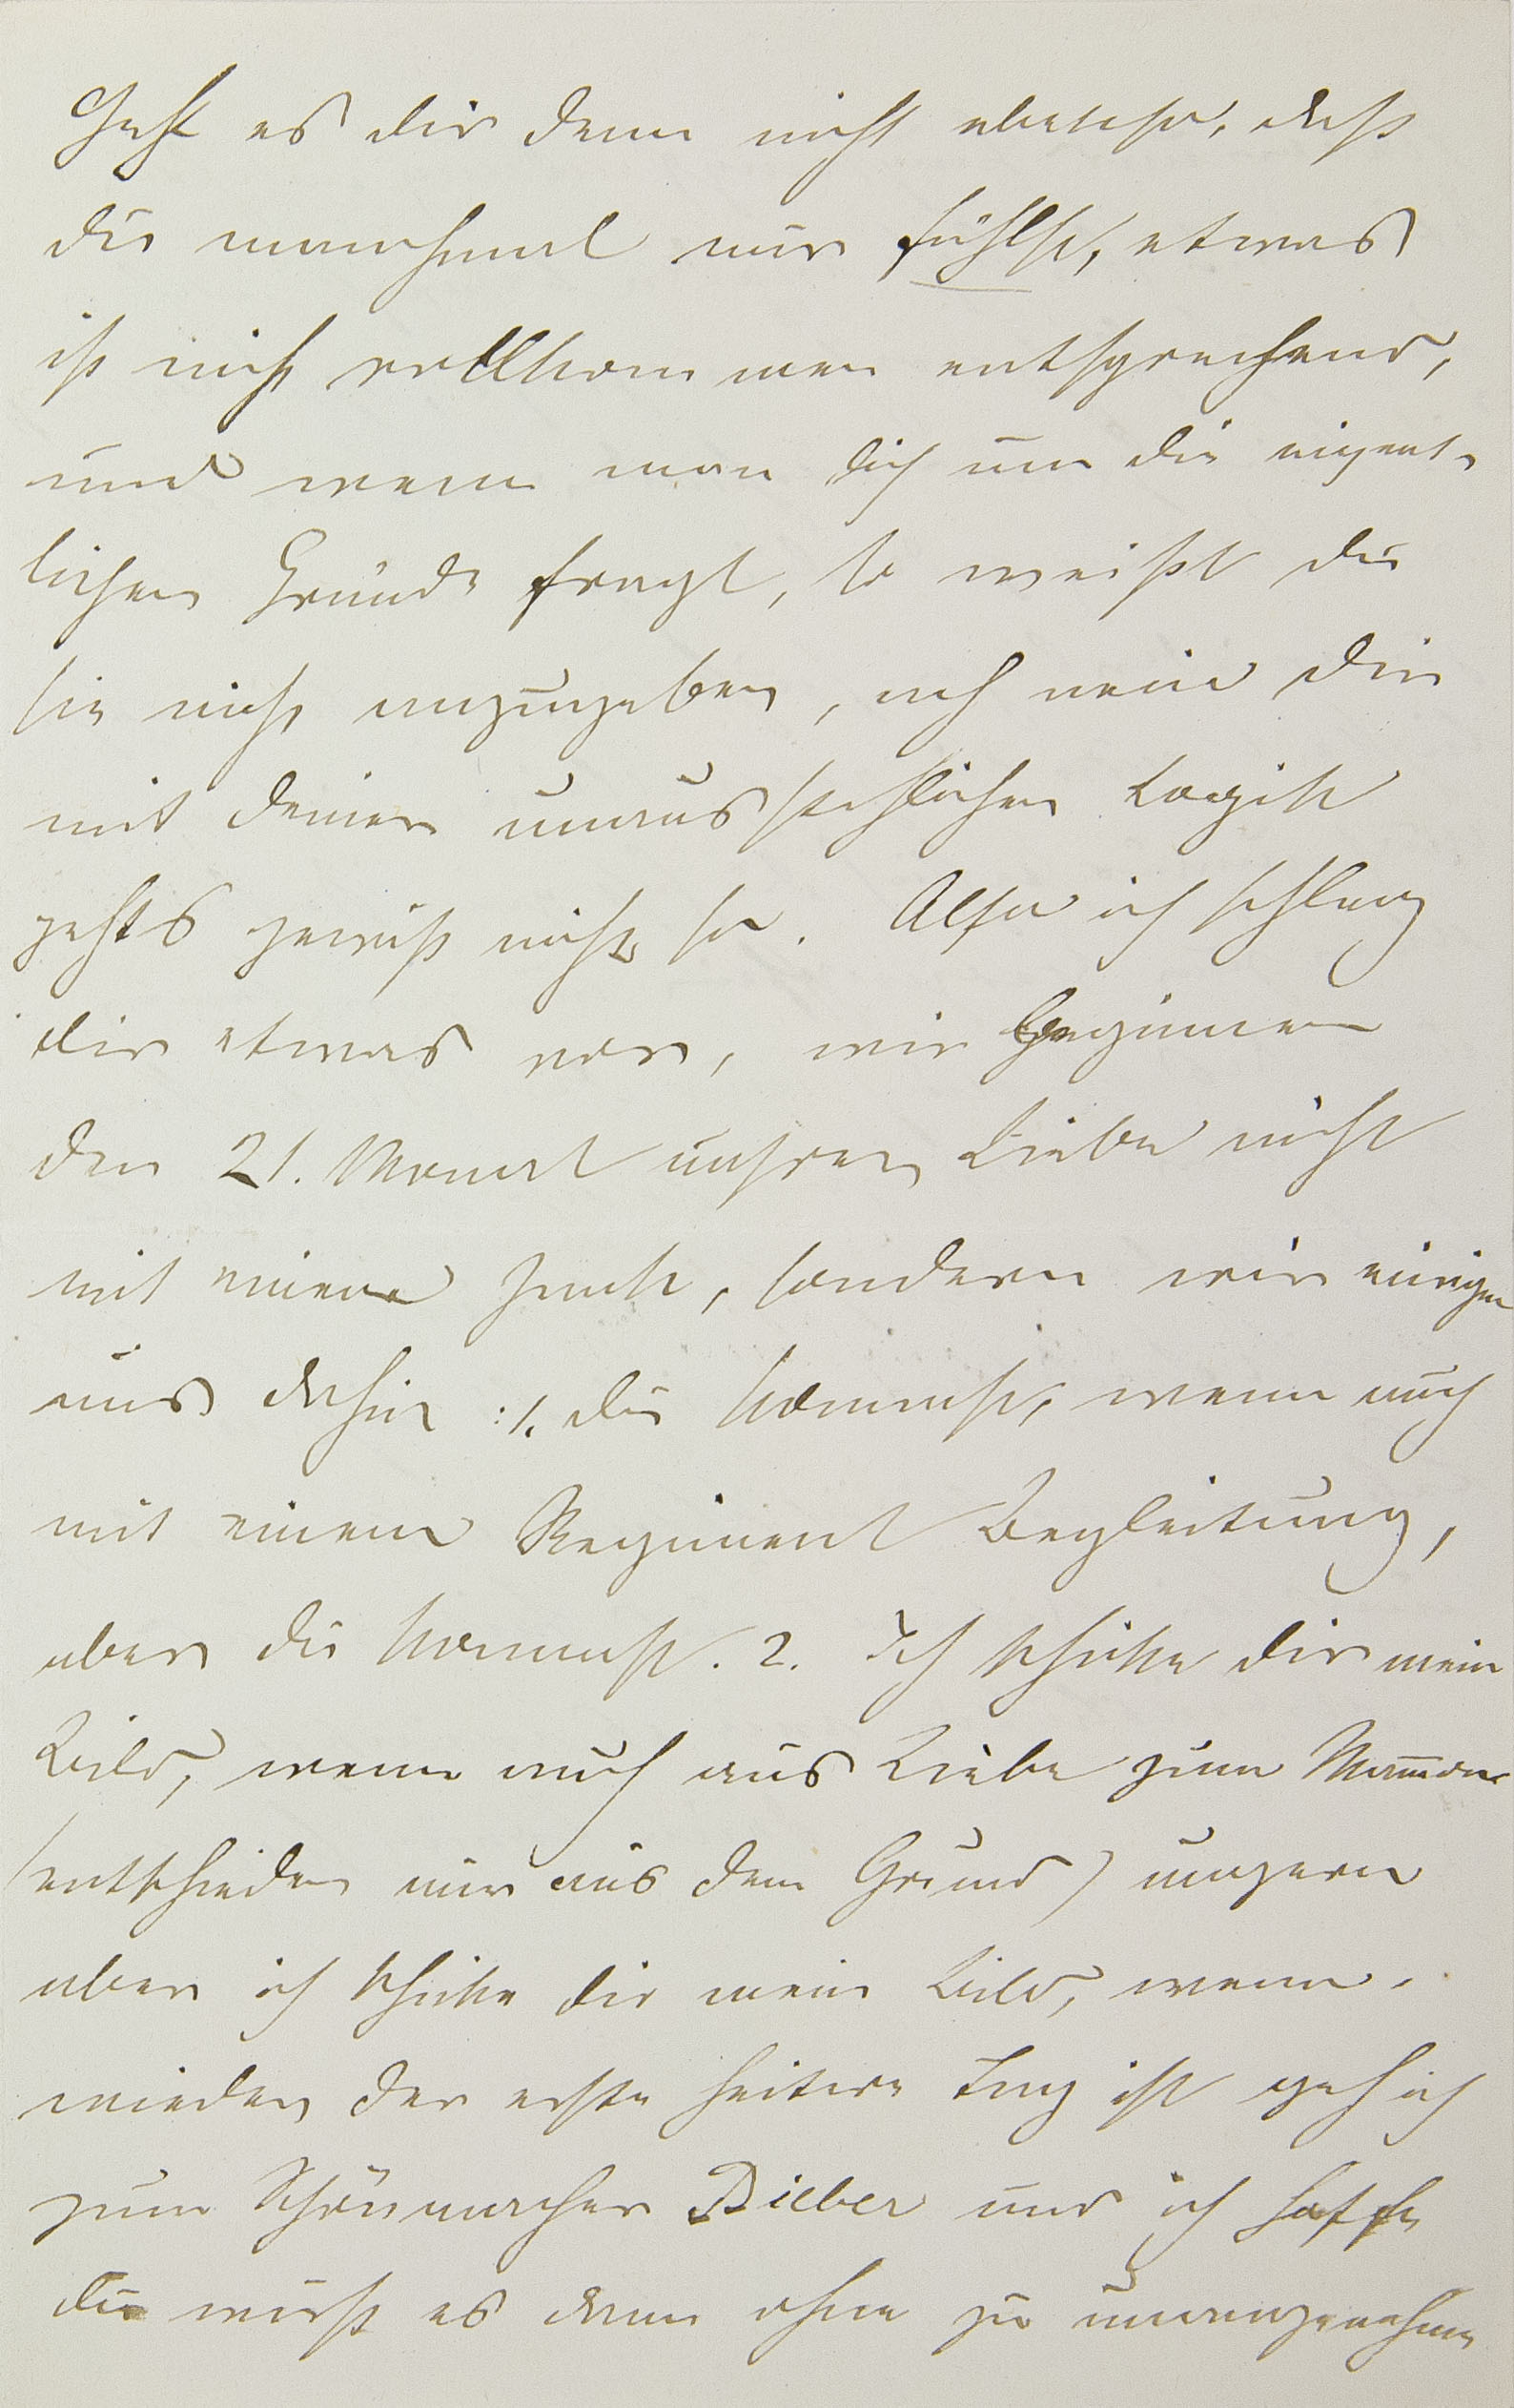 Geht es dir denn nicht ebenso, daß
du manchmal nur fühlst, etwas
ist nicht vollkommen entsprechend,
und wenn man dich um die eigent-
lichen Gründe fragt, so weißt du
sie nicht anzugeben, ach nein dir
mit deiner unausstehlichen Logik
gehts gewiß nicht so. Also ich schlag
dir etwas vor, wir beginnen
den 21. Monat unsrer Liebe nicht
mit einem Zank, sondern wir einigen
uns dahin: 1. du kommst, wenn auch
mit einem Regiment Begleitung,
aber du kommst. 2. Ich schicke dir mein
Bild, wenn auch aus Liebe zum Mamon
(entschieden nur aus dem Grund) ungern
aber ich schicke dir mein Bild, wenn
wieder der erste heitere Tag ist geh ich
zum Schönmacher Bieber und ich hoffe
du wirst es dann ohne zu unangenehme